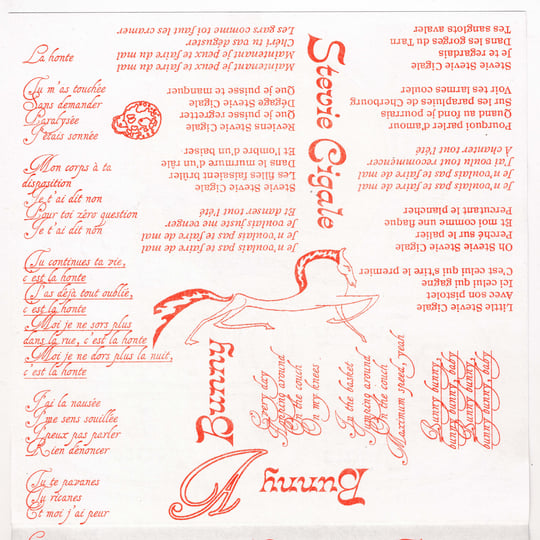 La honte
Tu m'as touchée
Sans demander
Paralysée
J'étais sonnée
Mon corps à ta
disposition
Je t'ai dit non
Pour toi zéro question
Je t'ai dit non
Tu continues ta vie,
c'est la honte
T'as déjà tout oublié,
c'est la honte
Moi je ne sors plus
dans la rue, c'est la honte
Moi je ne dors plus la nuit,
c'est la honte
J'ai la nausée
J'me sens souillée
J'peux pas parler
Rien dénoncer
Tu te pavanes
Tu ricanes
Et moi j'ai peur
Stevie Cigale
Little Stevie Cigale
Avec son pistolet
Ici celui qui gagne
C'est celui qui tire le premier
Oh Stevie Cigale
Perché sur le palier
Et moi comme une flaque
Percutant le plancher
Je n'voulais pas te faire de mal
Je n'voulais pas te faire de mal
J'ai voulu tout recommencer
À chanter tout l'été
Pourquoi parler d'amour
Quand au fond je pourrais
Sur les parapluies de Cherbourg
Voir tes larmes couler
Stevie Cigale
Je te regardais
Dans les gorges du Tarn
Tes sanglots avaler
Je n'voulais pas te faire de mal
Je n'voulais pas te faire de mal
J'voulais juste me venger
Et danser tout l'été
Stevie Cigale
Les filles faisaient brûler
Dans le murmure d'un râle
Et l'ombre d'un baiser
Reviens Stevie Cigale
Que je puisse regretter
Dégage Stevie Cigale
Que je puisse te manquer
Maintenant je peux te faire du mal
Maintenant je peux te faire de mal
Chéri tu vas déguster
Les gars comme toi faut les cramer
Bunny
Every day
Jumping around
On the couch
On my knees
In the basket
Jumping around
On the couch
Maximum speed, yeah
Bunny bunny,
bunny bunny, baby
Bunny bunny,
bunny bunny, baby
A
Bunny